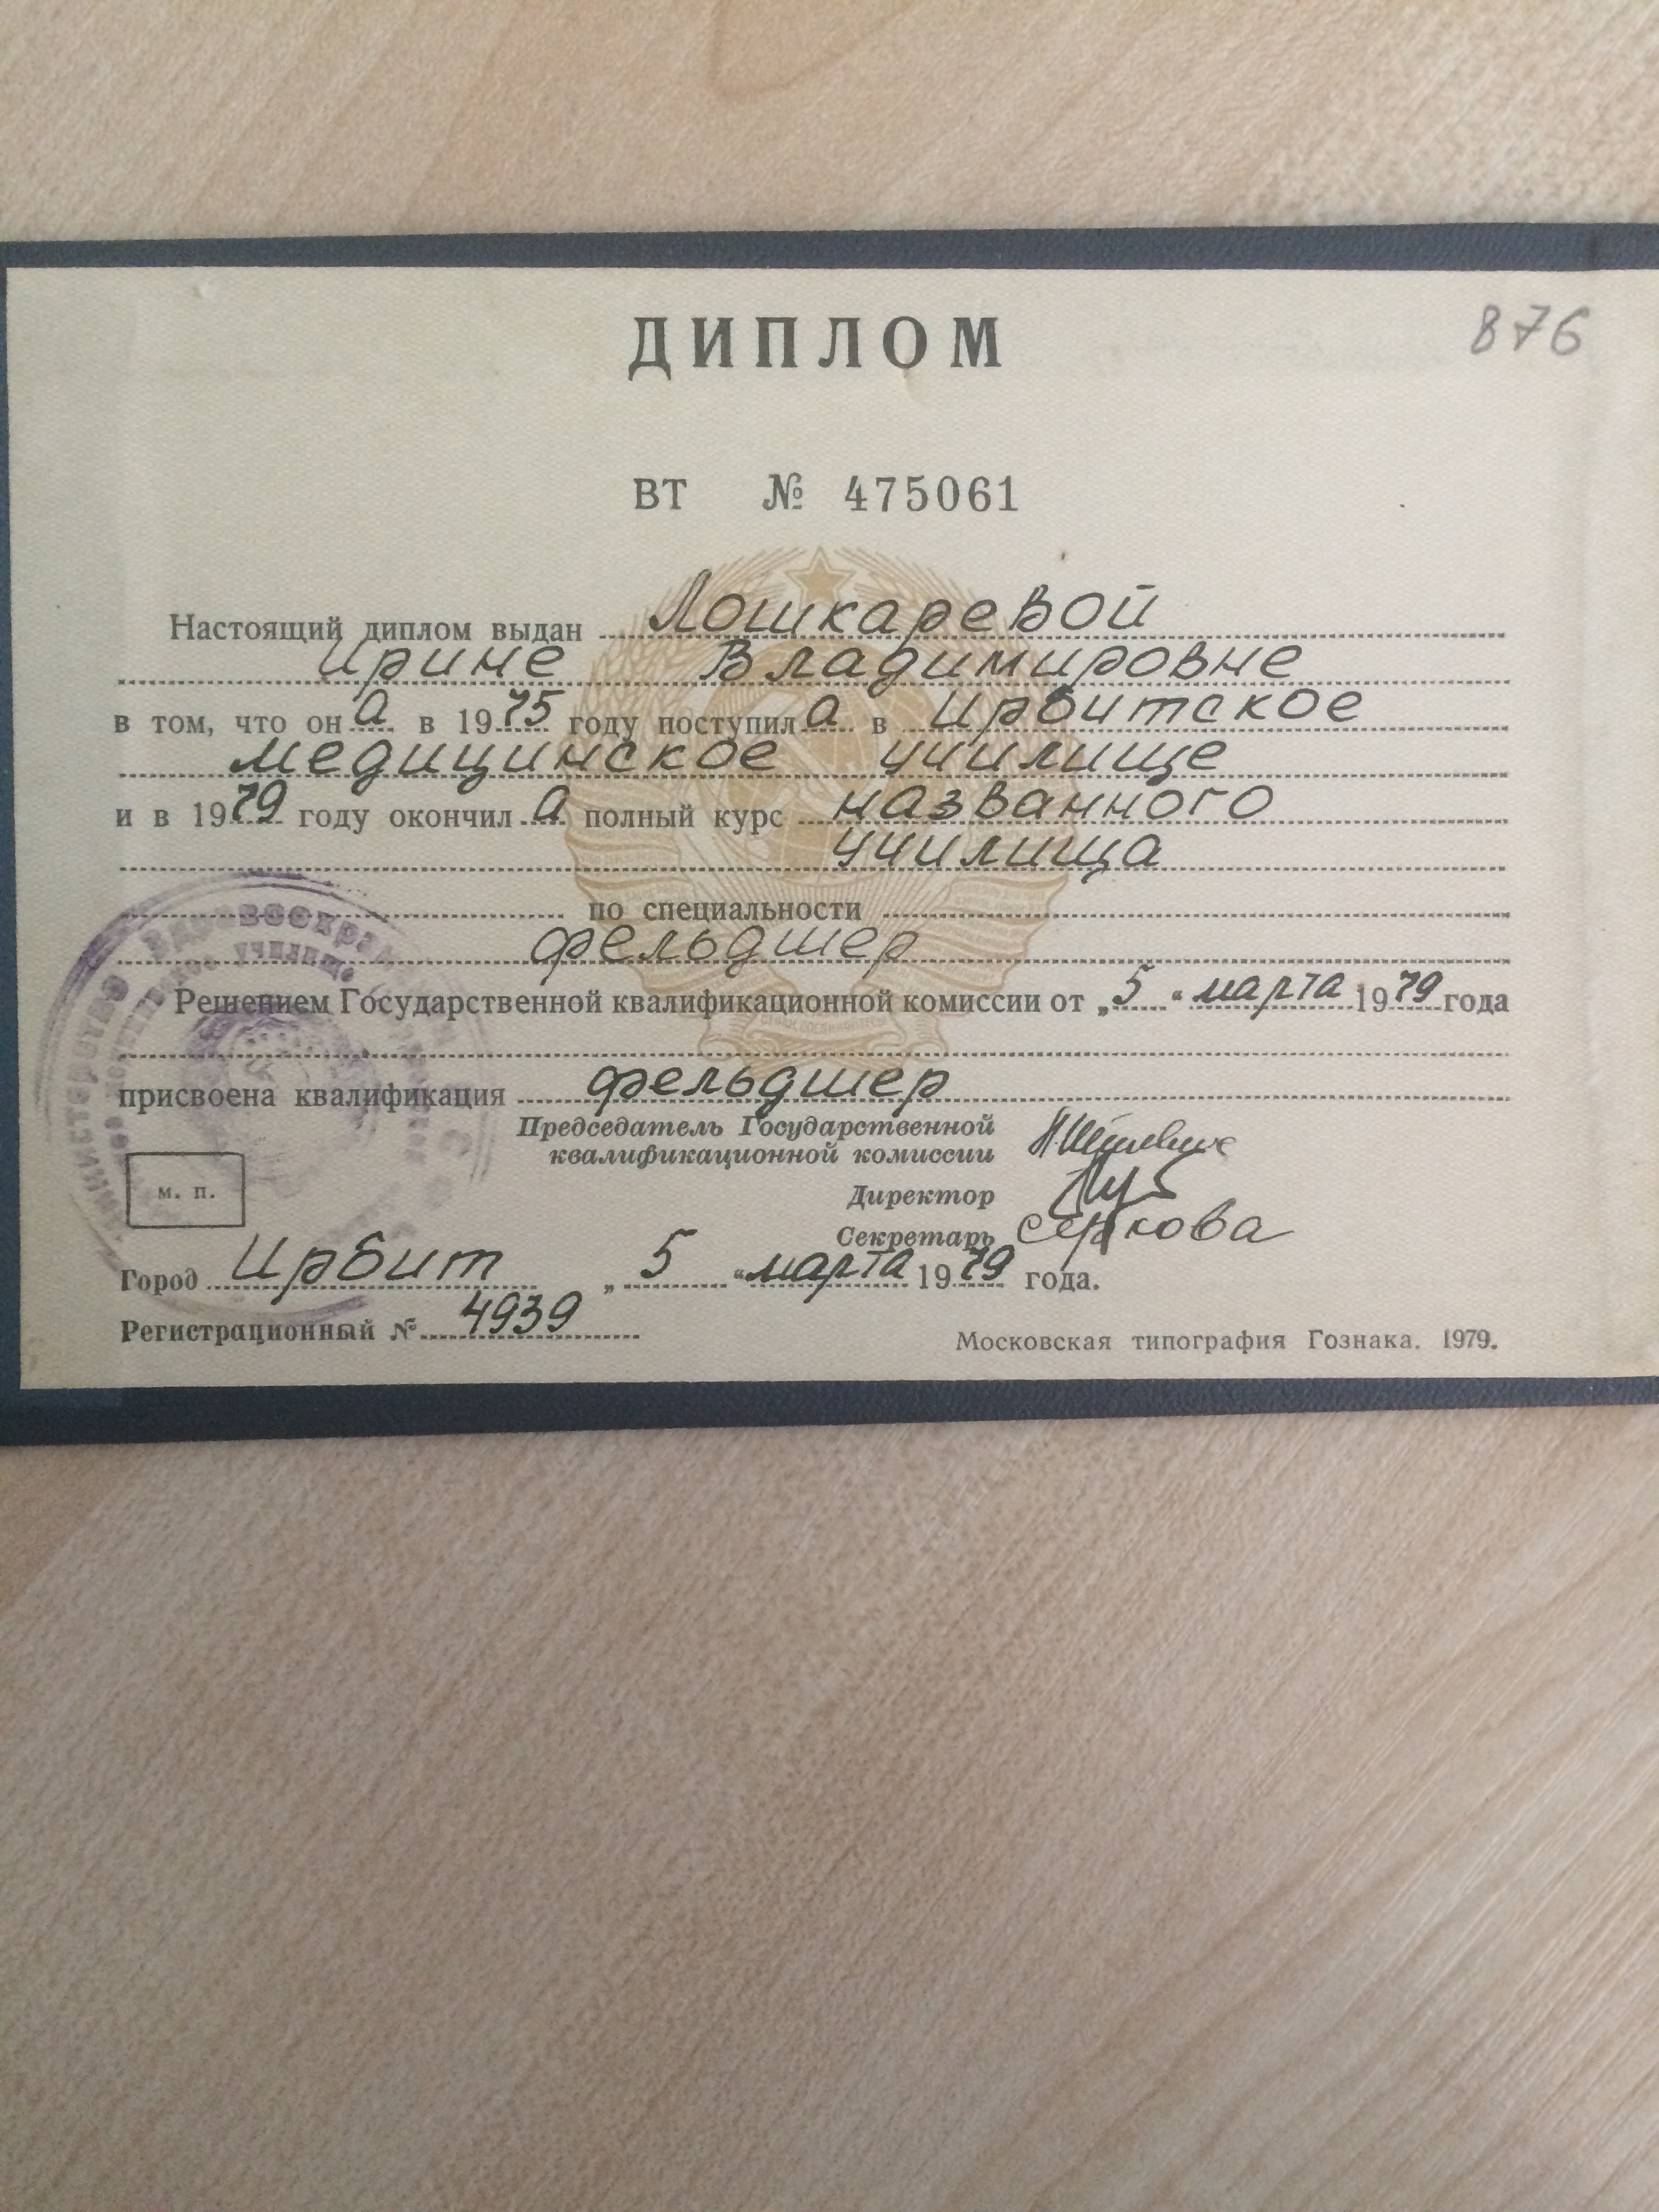 ДИПЛОМ
876
ВТ № 475061
Настоящий диплом выдан Лошкаревой
Ирине Владимировне
в том, что он а в 1975 году поступил а в Ирбитское
медицинское училище
и в 1979 году окончил а полный курс названного
училища
по специальности
фельдшер
Решением Государственной квалификационной комиссии от „5“ марта 1979 года
присвоена квалификация фельдшер
Председатель Государственной
квалификационной комиссии
Директор
Секретарь Серкова
м. п.
Город Ирбит „5“ марта 1979 года.
Регистрационный № 4939
Московская типография Гознака. 1979.